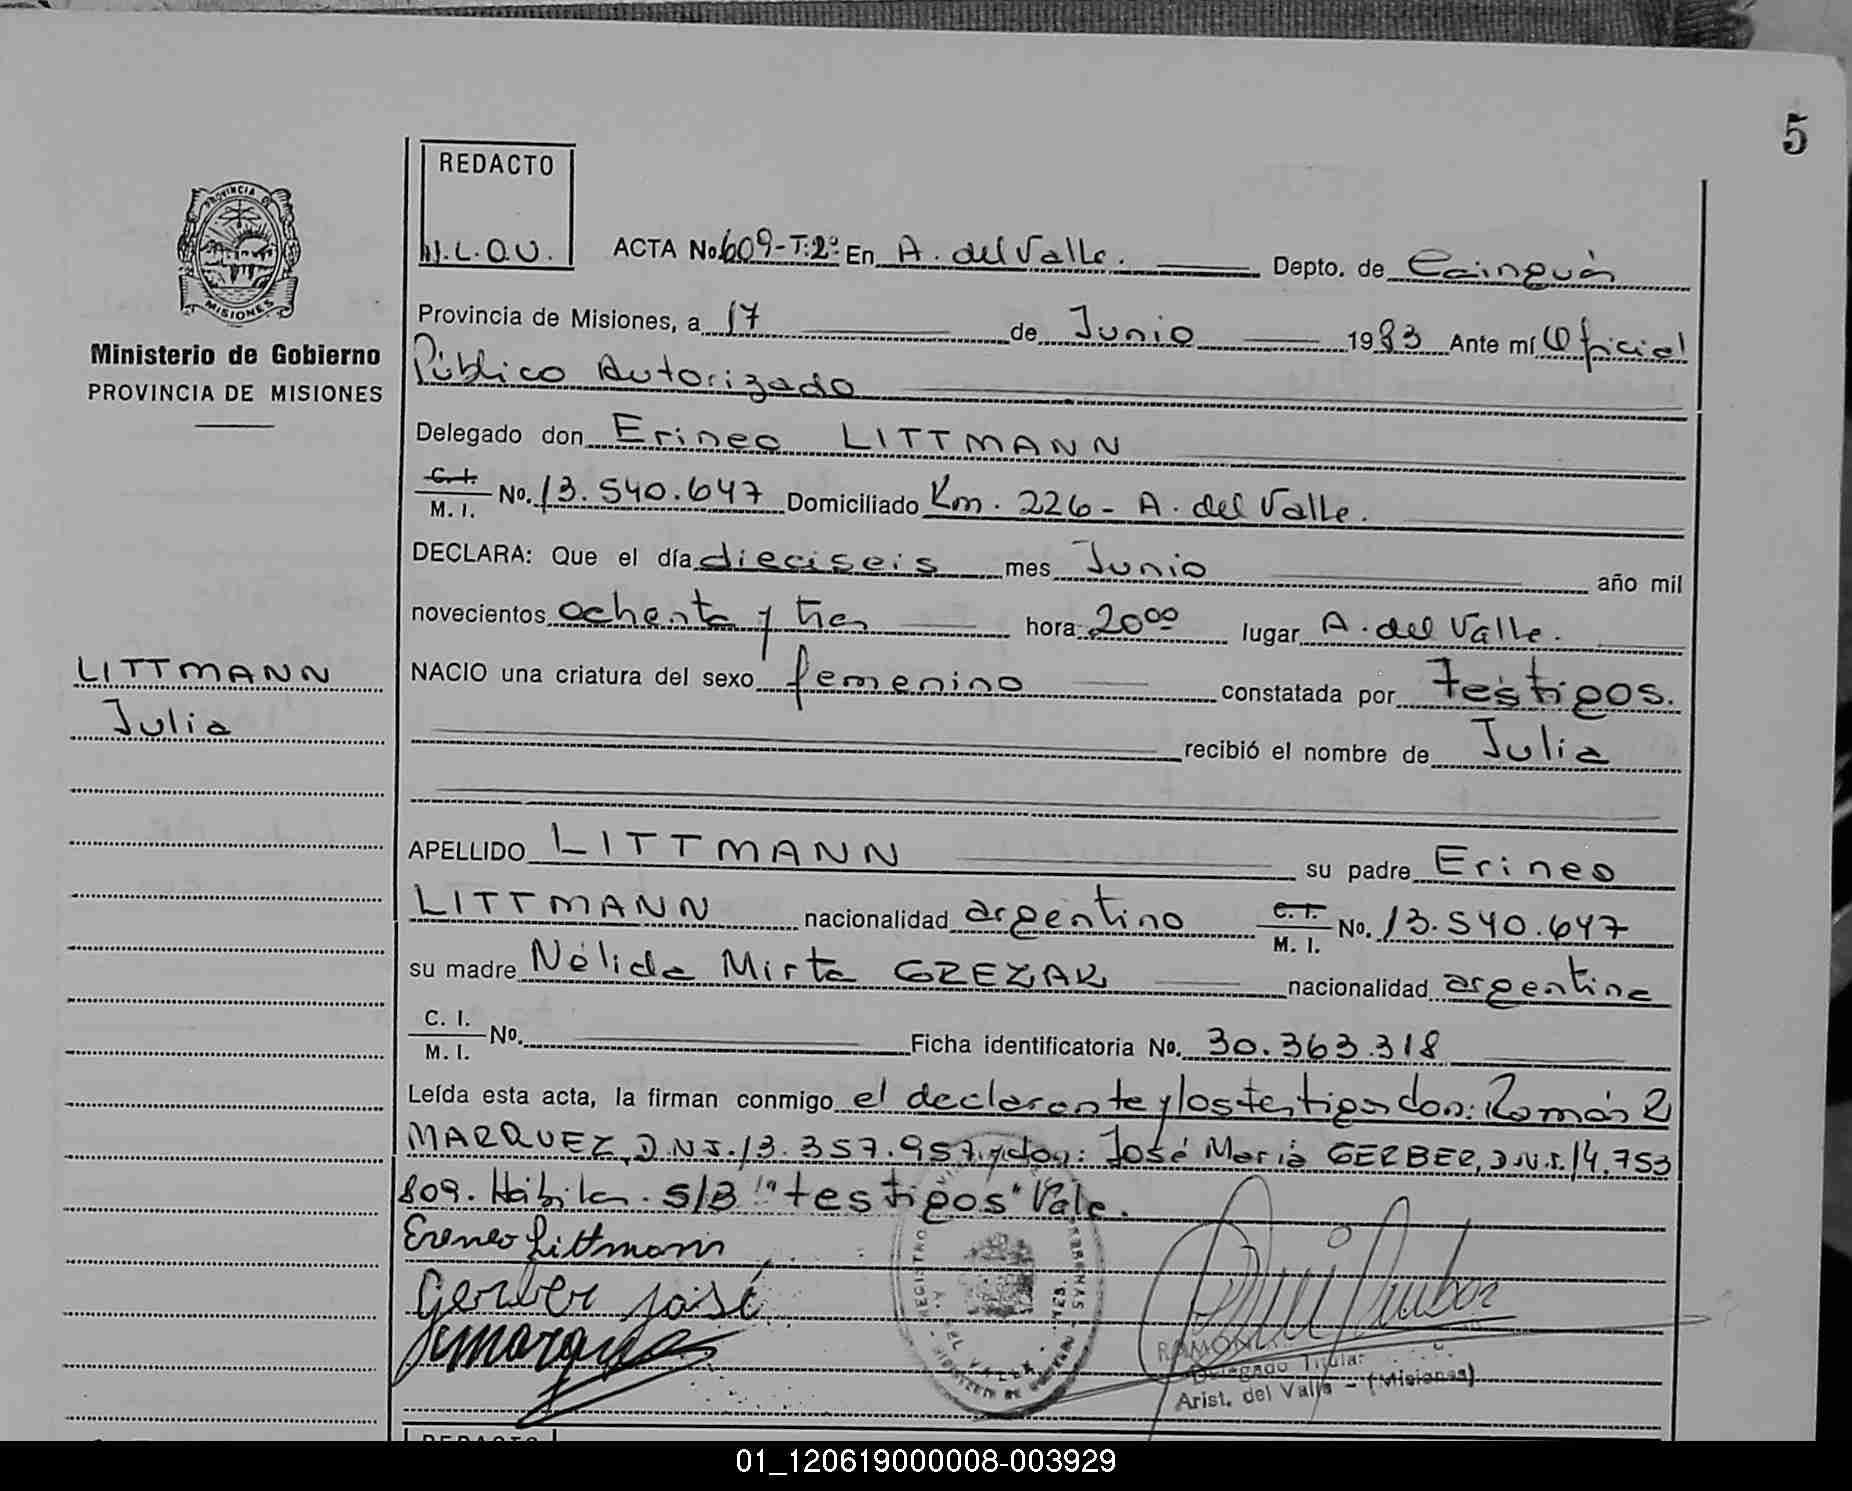 5
REDACTO
N.L.O.V.
ACTA No. 609-T:2º En A. del Valle. Depto. de Cainguás
PROVINCIA DE
MISIONES
Ministerio de Gobierno
PROVINCIA DE MISIONES
Provincia de Misiones, a 17 de Junio 1983 Ante mí Oficial
Público Autorizado
Delegado don Erineo LITTMANN
C. I.
M. I. No. 13.540.647 Domiciliado Km. 226 - A. del Valle.
DECLARA: Que el día dieciseis mes Junio año mil
novecientos ochenta y tres hora 20⁰⁰ lugar A. del Valle.
LITTMANN
Julia
NACIO una criatura del sexo femenino constatada por testigos.
recibió el nombre de Julia
APELLIDO LITTMANN su padre Erineo
LITTMANN nacionalidad argentino C. I. M. I. No. 13.540.647
su madre Nélida Mirta GREZAK nacionalidad argentina
C. I.
M. I. No. Ficha identificatoria No. 30.363.318
Leída esta acta, la firman conmigo el declarante y los testigos don: Román R
MARQUEZ, D.N.I. 13.357.957. y don: José María GERBER, D.N.I. 14.753
809. Hábiles. S/B "testigos" Vale.
Ereneo Littmann
Gerber José
REGISTRO
A. DEL VALLE - MNES.
RAMON
Delegado Titular
Arist. del Valle - (Misiones)
REDACTO
01_120619000008-003929